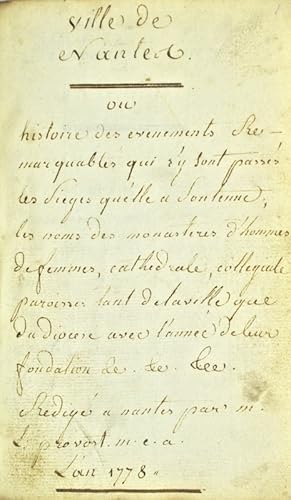 Ville de
Nantes.
ou
histoire des evenements Re-
marquables qui s'y sont passés
les Sieges qu'elle à Soutenue,
les noms des monasteres d'hommes
de femmes, cathédrale, collegiale
paroisses tant de la ville que
du diocese avec l'année de leur
fondation &c. &c. &c.
Redigé a nantes par m.
L. provost. m. e. a.
L'an 1778.